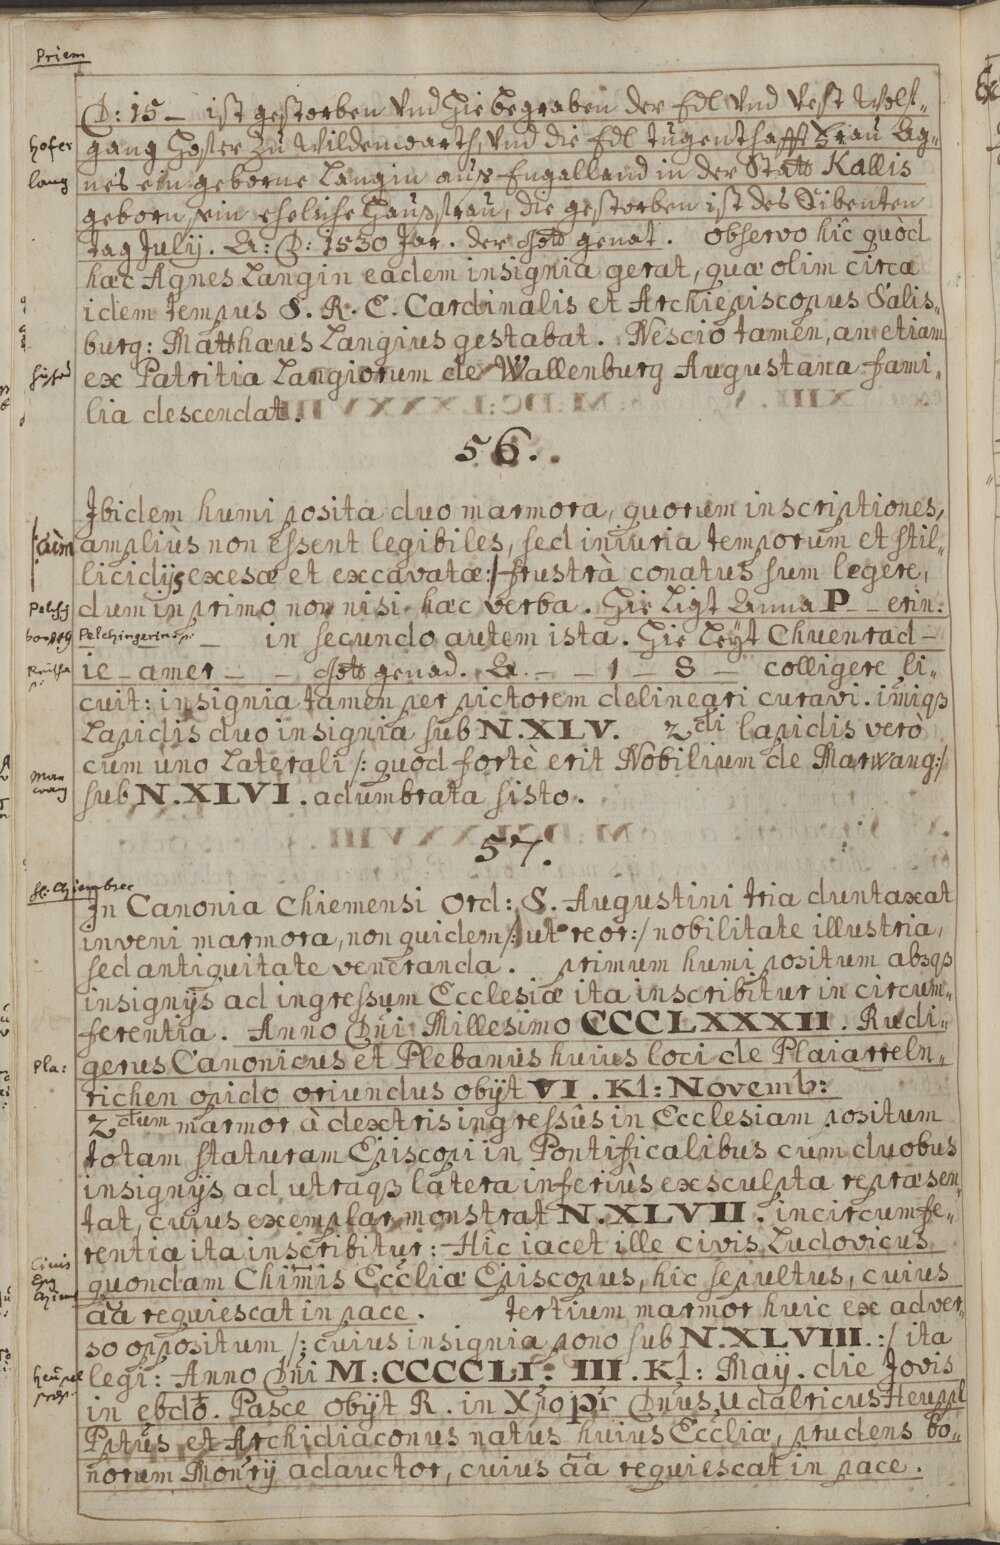 Priem
D: 15 – ist gestorben Vnd Hie begraben der Edl Vnd Vest Wolf„
hofer
gang Hofer Zu Wildenwarth, Vnd die Edl tugenthafft Frau Ag„
lang
nes ein geborne Langin aus Engalland in der Statt Kallis
geborn sein eheliche Haussfrau, die gestorben ist des Sibenten
tag Julij. A: D: 1530 Jar. der Gott genat. Observo hîc quòd
hæc Agnes Langin eadem insignia gerat, quæ olim circa
idem tempus S. R. E. Cardinalis et Archiepiscopus Salis„
burg: Matthæus Langius gestabat. Nescio tamen, an etiam
ex Patritia Langiorum de Wallenburg Augustana fami„
lia descendat.
56.
Ibidem humi posita duo marmora, quorum inscriptiones,
/cùm àmpliùs non essent legibiles, sed iniuria temporum et stil„
licidijs exesæ et excavatæ:/ frustrà conatus sum legere,
dum in primo non nisi hæc verba. Hie Ligt Anna P – erin:
Pelchingerin – in secundo autem ista. Hie Leÿt Chuenrad –
ie – amer – – Gott genad. A. – – 1 – 8 – colligere li„
cuit: insignia tamen per pictorem delineari curavi. imiqȝ
Lapidis duo insignia sub N. XLV. 2di lapidis verò
cum uno Laterali /: quod fortè erit Nobilium de Marwang:/
Mar
wang
sub N. XLVI. adumbrata sisto.
57.
H: Chiembsee
In Canonia Chiemensi Ord: S. Augustini tria duntaxat
inveni marmora, non quidem /: ut reor:/ nobilitate illustria,
sed antiquitate veneranda. primum humi positum absqȝ
insignijs ad ingressum Ecclesiæ ita inscribitur in circum„
ferentia. Anno Dni Millesimo CCCLXXXII. Rudi„
Pla:
gerus Canonicus et Plebanus huius loci de Plaiarreln„
richen opido oriundus obijt VI. Kl: Novemb:
2dum marmor à dextris ingressûs in Ecclesiam positum
totam staturam Episcopi in Pontificalibus cum duobus
insignijs ad utraqȝ latera inferiùs exsculpta repræsen„
tat, cuius exemplar monstrat N. XLVII. in circumfe„
rentia ita inscribitur: Hîc iacet ille civis Ludovicus
Civis
Epȳ
Chiem
quondam Chimis Ecclia Episcopus, hic sepultus, cuius
aa requiescat in pace. Tertium marmor huic ex adver„
so oppositum /: cuius insignia pono sub N. XLVIII.:/ ita
heuppel
legi: Anno Dni M:CCCCLI. III. Kl: May. die Jovis
in ebdo. Pasce obijt R. in Xpo pr Dnus, udalricus Heuppl
Pptus et Archidiaconus natus huius Ecclia, prudens bo„
norum Monrij adauctor, cuius aa requiescat in pace.